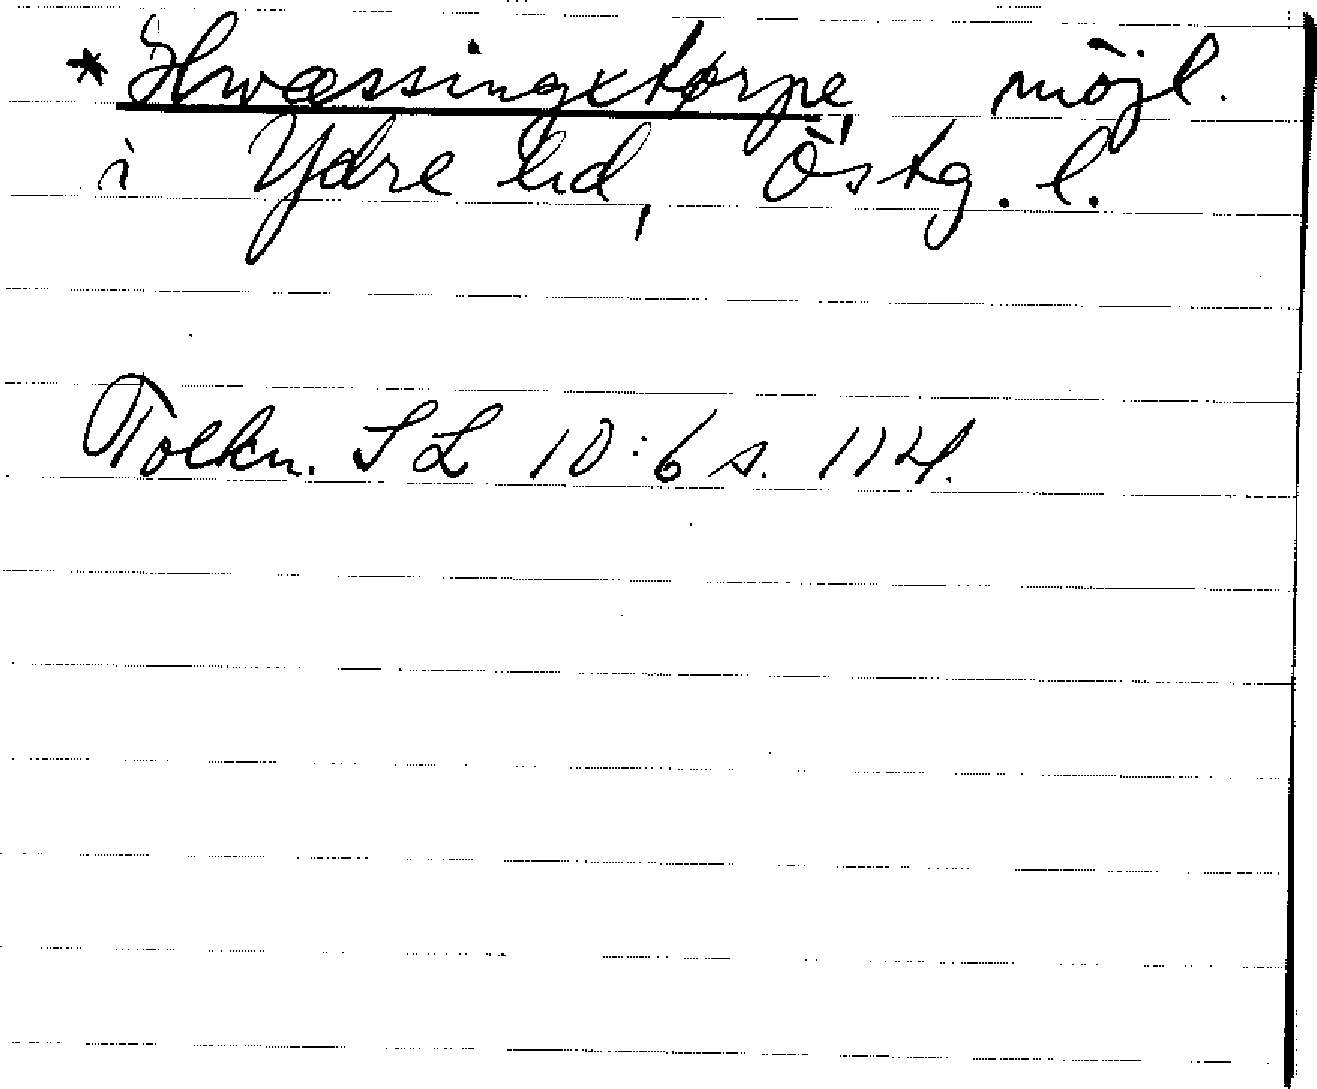 *Hwæssingxtorpe, möjl.
i Ydre hd, Östg. l.
Tolkn. SL 10:6 s. 114.